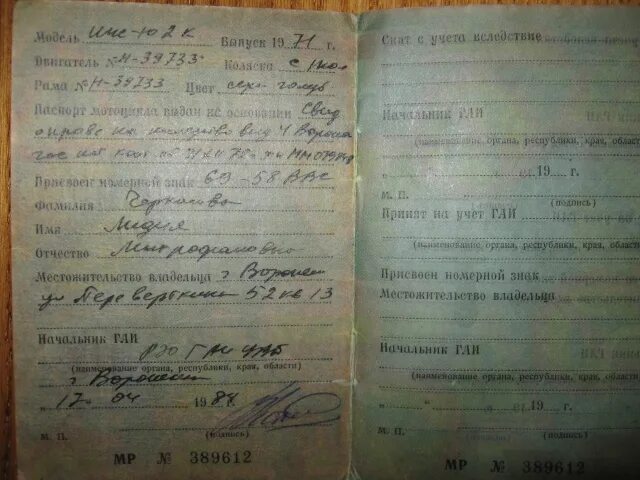 Модель Иж-Ю2К Выпуск 1971 г.
Двигатель № Н-39733 Коляска с кол
Рама № Н-39733 Цвет серо голуб
Паспорт мотоцикла выдан на основании Свид
о праве на наследство выд 4 Вороне
гос нот кон
Присвоен номерной знак 69-58 ВВС
Фамилия
Имя Лидия
Отчество Митрофановна
Местожительство владельца г Воронеж
ул Переверткина 52 кв 13
Начальник ГАИ РЭО ГАИ УВД
(наименование органа, республики, края, области)
г. Воронеж
„ 17 " 04 1984 г.
М. П. (подпись)
МР № 389612
Снят с учета вследствие
Начальник ГАИ
(наименование органа, республики, края, области)
„ " 19 г.
М. П. (подпись)
Принят на учет ГАИ
(наименование органа, республики, края, области)
Присвоен номерной знак
Местожительство владельца
Начальник ГАИ
(наименование органа, республики, края, области)
„ " 19 г.
М. П. (подпись)
МР № 389612